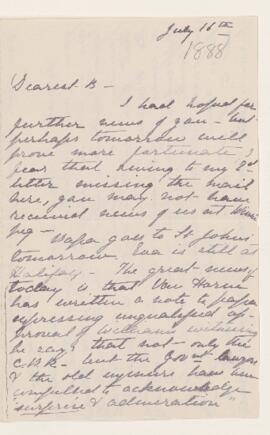 July 16th
1888
Dearest B -
I had hoped for
further news of you - but
perhaps tomorrow will
prove more fortunate. I
fear that owing to my 2nd
letter missing the mail
here, you may not have
received news of us at Winni
peg -
Papa goes to St Johns
tomorrow. Eva is still at
Halifax - The great news of
today is that Van Horne
has written a note to papa
expressing unqualified ap-
proval of Williams
he says that not - only the
C.P.R. - but the Govmt
& the old have been
compelled to acknowledge
"surprise & admiration"